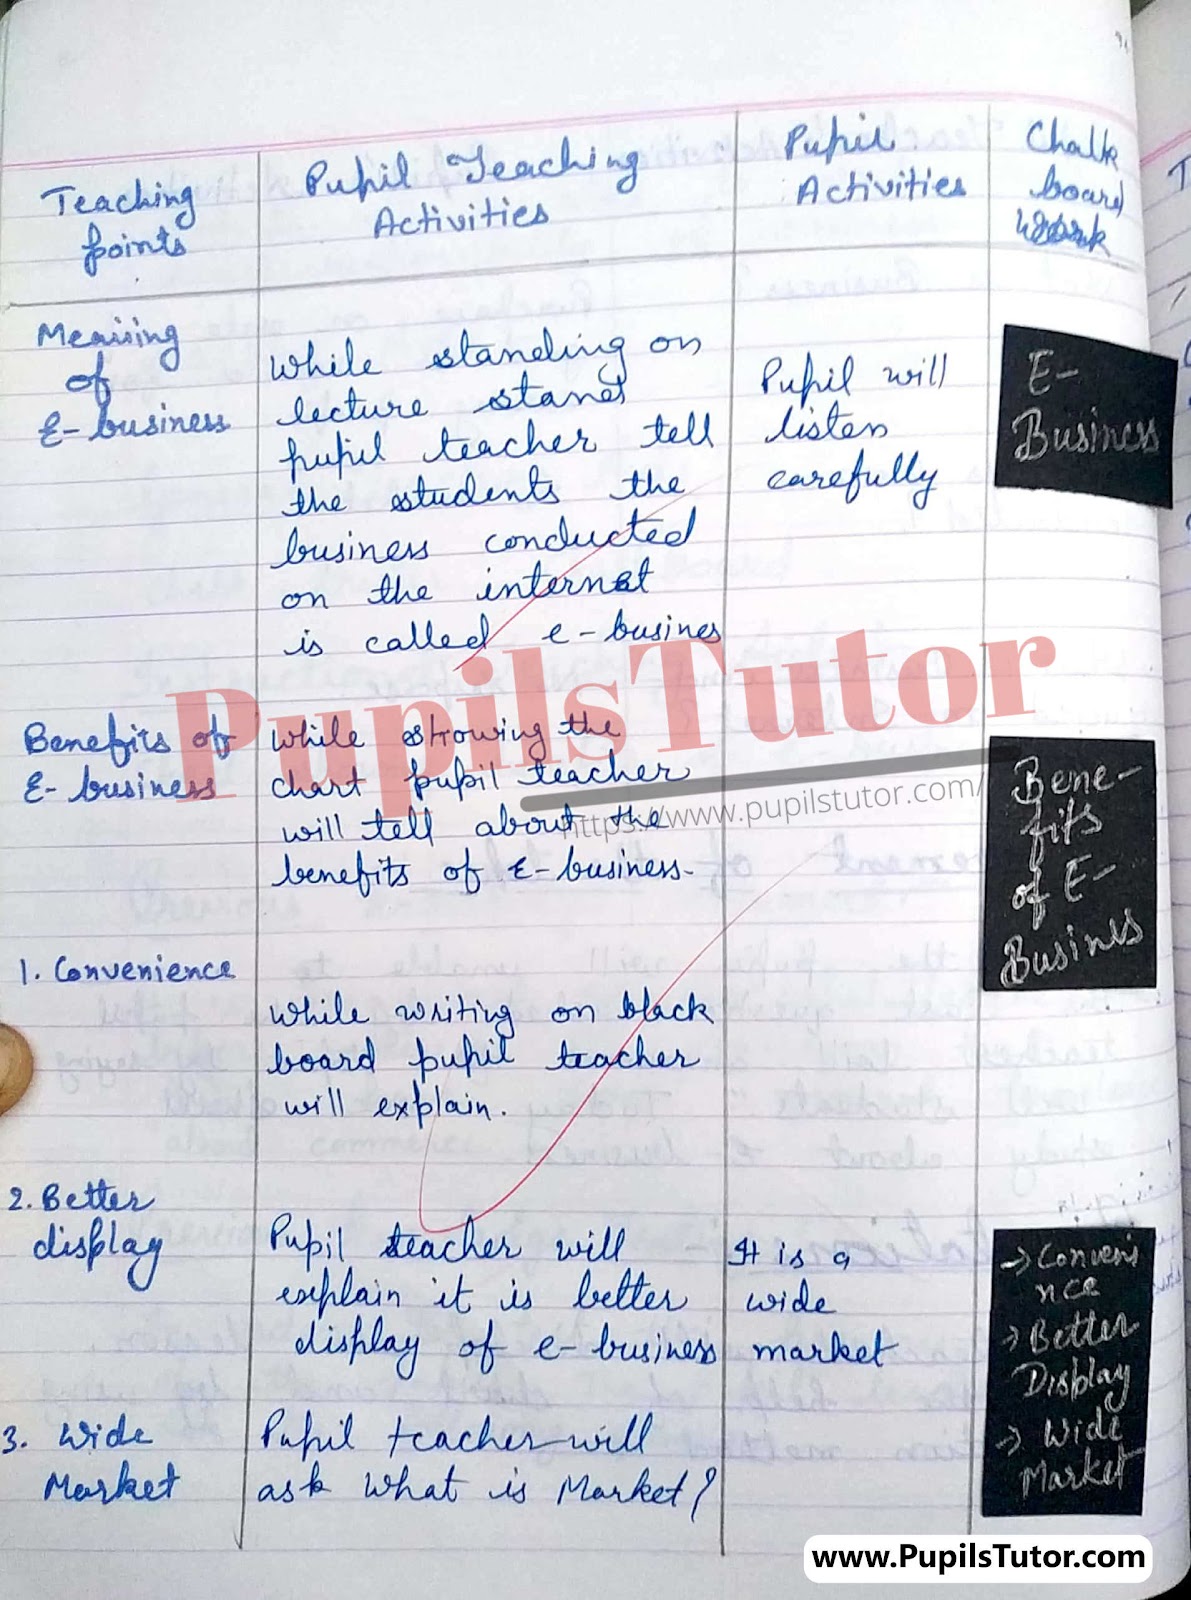 Teaching
points
Pupil Teaching
Activities
Pupil
Activities
Chalk
board
work
Meaning
of
E-business
While standing on
lecture stand
pupil teacher tell
the students the
business conducted
on the internet
is called e-busines
Pupil will
listen
carefully
E-
Business
Benefits of
E-business
While showing the
chart pupil teacher
will tell about the
benefits of E-business.
Bene-
fits
of E-
Busines
1. Convenience
While writing on black
board pupil teacher
will explain.
2. Better
display
Pupil teacher will
explain it is better
display of e-business
It is a
wide
market
→ Conveni
nce
→ Better
Display
→ Wide
Market
3. Wide
Market
Pupil teacher will
ask What is Market?
PupilsTutor
https://www.pupilstutor.com/
www.PupilsTutor.com